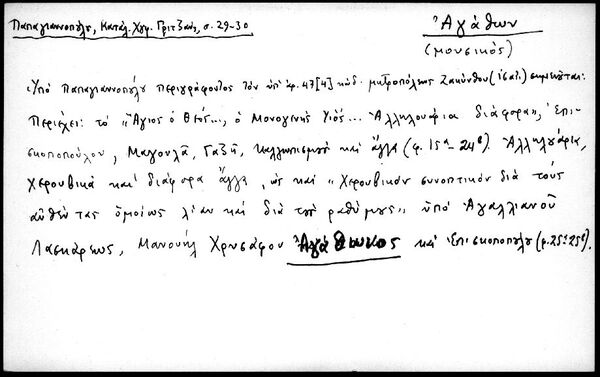 Παπαγιαννοπούλου, Κατάλ. Χγφ. Γριτζάνη, σ. 29-30
Ἀγάθων
(μουσικός)
Ὑπὸ Παπαγιαννοπούλου περιγράφοντος τὸν ὑπ' ἀρ. 47[4] κώδ. μητροπόλεως Ζακύνθου
Περιέχει: τὸ "Ἅγιος ὁ Θεός..., ὁ Μονογενὴς Υἱός... Ἀλληλουάρια διάφορα", Ἐπι-
σκοποπούλου, Μαγουλᾶ, Γαζῆ, καλλωπισμοὺς καὶ ἄλλα (φ. 15α-24β). Ἀλληλουάρια,
Χερουβικὰ καὶ διάφορα ἄλλα, ὡς καὶ "Χερουβικὸν συνοπτικὸν διὰ τοὺς
αὐθέντας ὁμοίως λίαν καὶ διὰ τοὺς ῥαθύμους" ὑπὸ Ἀγαλλιανοῦ
Λασκάρεως, Μανουὴλ Χρυσάφου Ἀγάθωνος καὶ Ἐπισκοποπούλου (φ. 25α-25β).